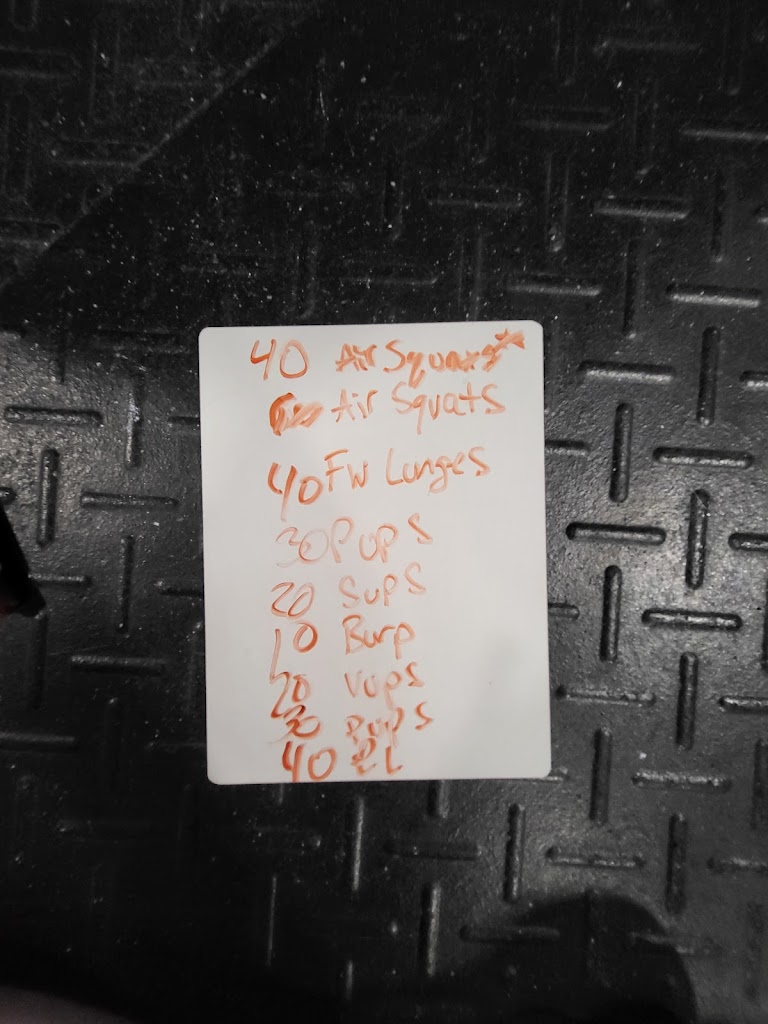 40 Air Squats
Air Squats
40 FW Lunges
30 PUPS
20 SUPS
10 Burp
20 VUPS
30 PUPS
40 RL